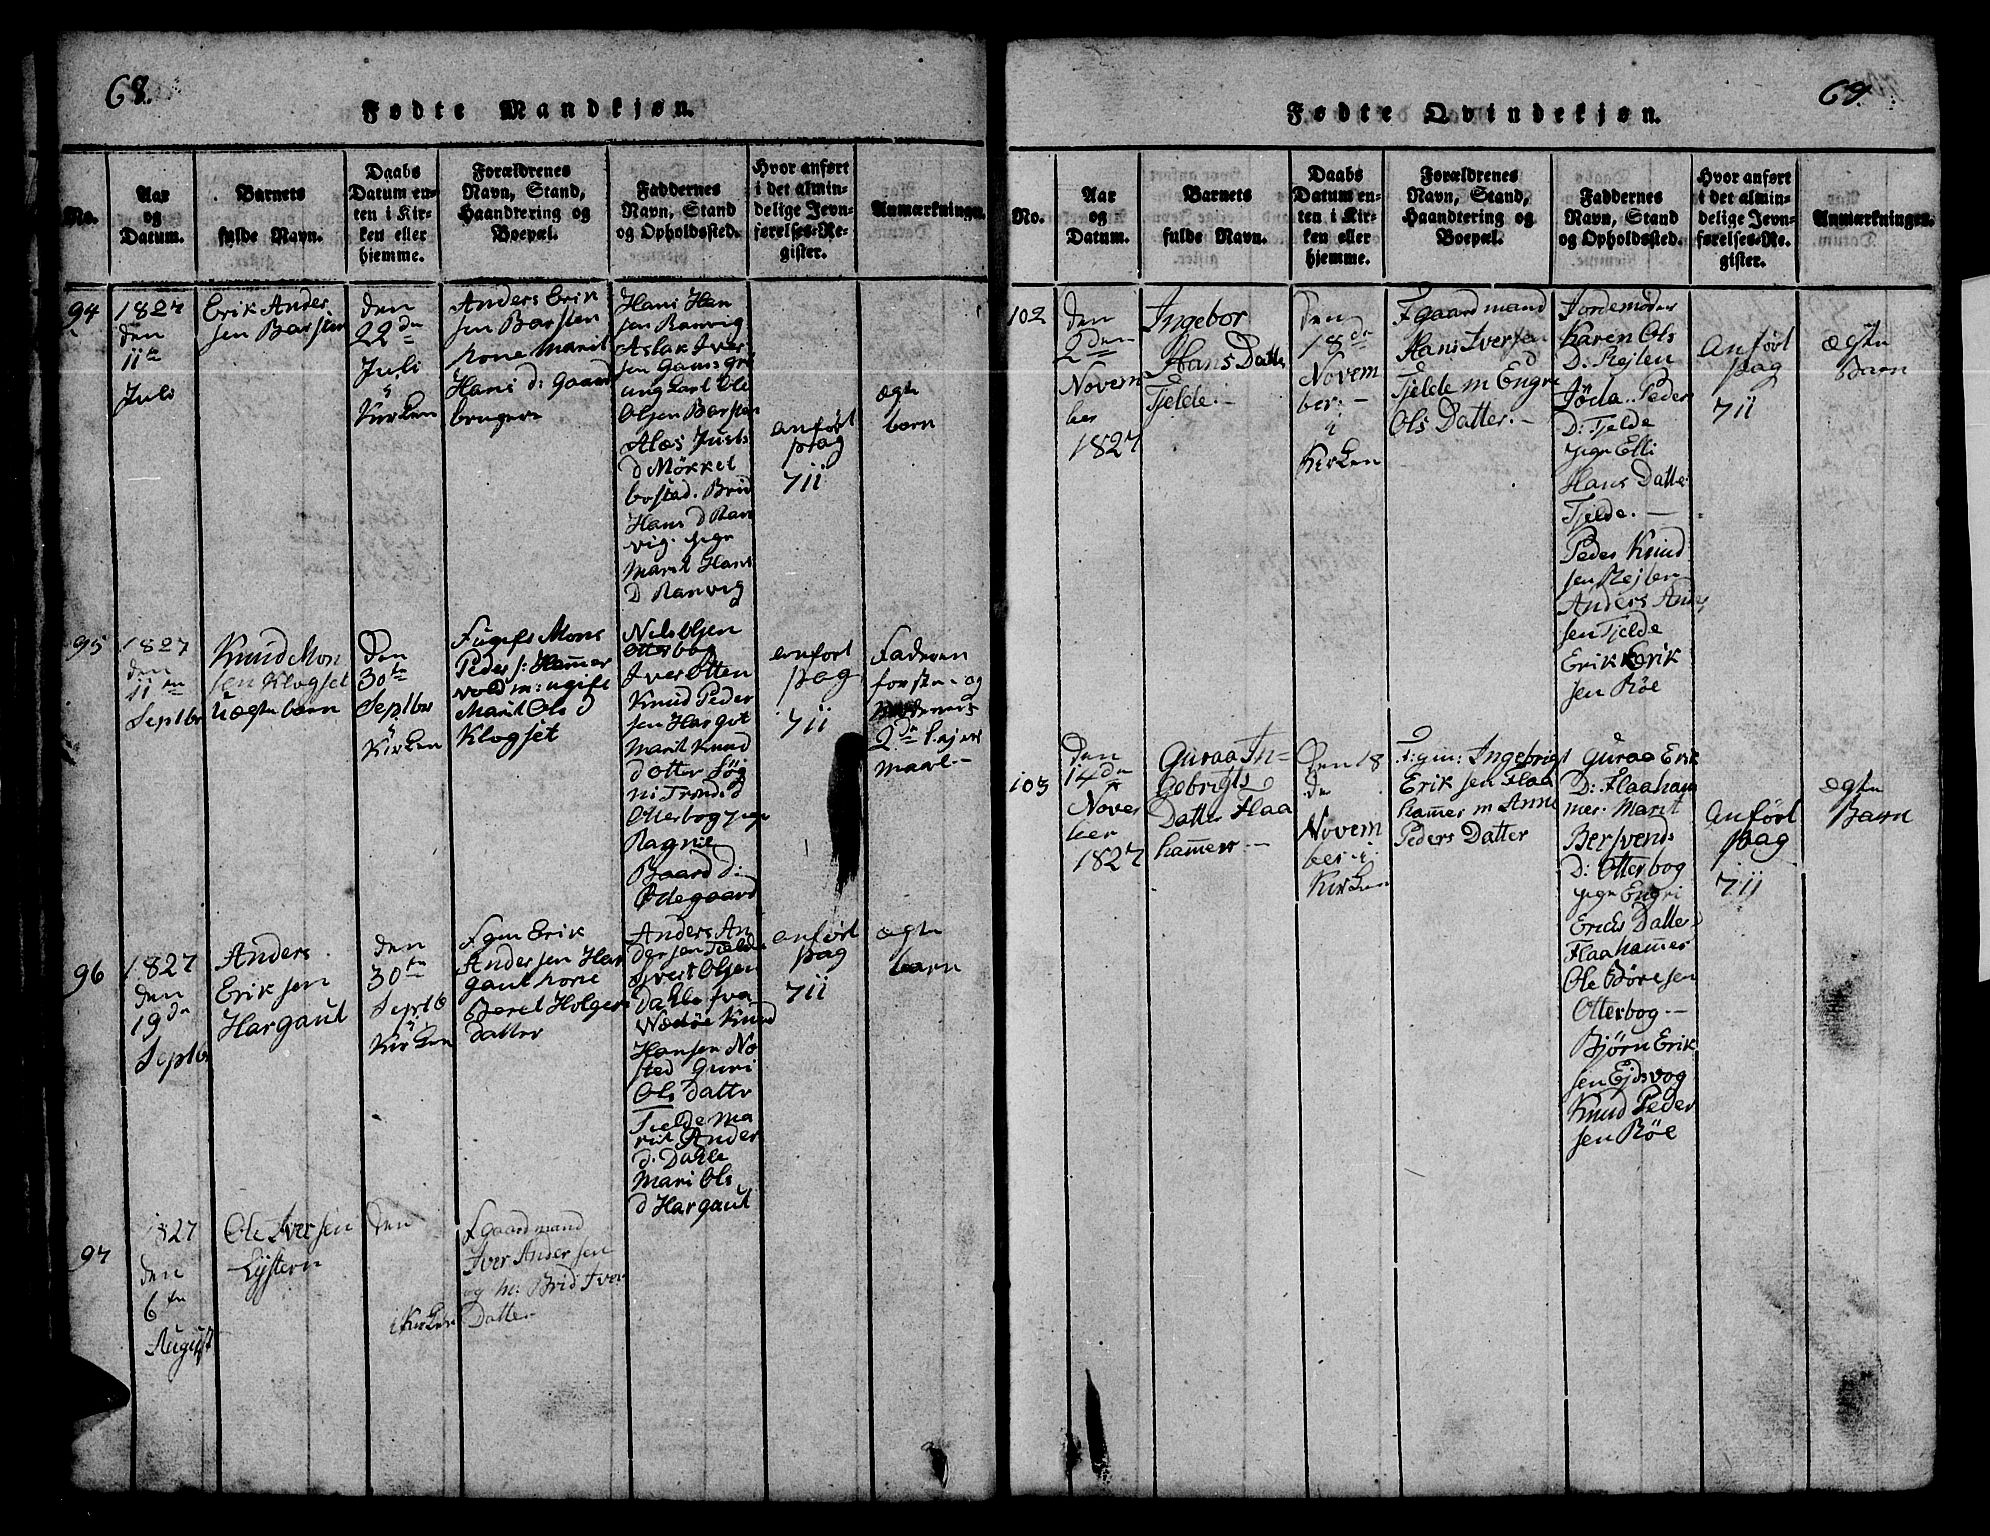 68.
Fødte Mandkjøn.
No.
Aar
og
Datum.
Barnets
fulde Navn.
Daabs
Datum en-
ten i Kir-
ken eller
hjemme.
Forældrenes
Navn, Stand,
Haandtering og
Boepæl.
Faddernes
Navn, Stand
og Opholdssted.
Hvor anført
i det almin-
delige Jevn-
førelses-Re-
gister.
Anmærkninger.
94
1827
den
11te
Juli
Erik Ander
sen Barsten
den
22de
Juli
i
Kirken
Anders Erik
sen Barsten
kone Marit
Hans d: Gaard
brugere
Hans Han
sen Ranvig
Aslak Iver
sen
ung karl Ole
Olsen Barsten
d Mökkel
bostad. Brid
Hans d Ran
vig. pige
Marit Hans
D Ranvig
anført
pag
711
ægte
barn
95
1827
den
11te
Septbr
Knud Mon
sen Klogset
Uægte barn
den
30te
Septbr
i
Kirken
Mons
Peder s: Hammer
vold m: ugift
Marit Ols d
Klogset
Nils Olsen
Otterbog
Iver Otten
Knud Peder
sen Hargut
Marit Knud
dotter Søg
ni Trond. d
Otterbog pige
Ragnie
Baard d:
Ødegaard
anført
pag
711
Faderen
første og
Moderens
2de Lejer
maal.-
96
1827
den
19de
Septbr
Anders
Erik sen
Hargaut
den
30te
Septb
i
Kirken
Erik
Andersen Har
gaut kone
Beret Holger
datter
Anders An
dersen Tjelde
Sivert Olsen
Dahle Iva
Wædøe Knud
Hansen No
sted Guri
Ols Dattr
Tielde Ma
rit Ander
d. Dahle
Mari Ols
d Hargaut
anført
pag
711
ægte
barn
97
1827
den
6te
August
Ole Iversen
Lystern
den
i Kirken
F gaardmand
Iver Andersen
og k: Brid Iver
Datte.-
69.
Fødte Qvindekjøn.
No.
Aar
og
Datum.
Barnets
fulde Navn.
Daabs
Datum en-
ten i Kir-
ken eller
hjemme.
Forældrenes
Navn, Stand,
Haandtering og
Boepæl.
Faddernes
Navn, Stand
og Opholdssted.
Hvor anført
i det almin-
delige Jevn-
førelses-Re-
gister.
Anmærkninger.
102
den
2den
Novem
ber
1827
Ingebor
Hans Datte
Tjelde.-
Den
18de
Novem
ber.-
i
Kirken
F gaardmand
Hans Iversen
Tjelde m Engre
Ols Datter.-
Jordemoder
Karen Ols
D: Rejten
Jöda.. Peder
D: Tjelde
pige Elli
Hans Datte
Tjelde.-
Peder Knud
sen Rejten
Anders Anders
sen Tjelde
Erik Erik
sen Röe
anført
pag
711
ægte
Barn
103
den
14de
Novem
ber
1827
Guraa In-
gebrigts
Datter Flaa
hammer-
Den 18
de
Novem
ber i
Kirken
Ingebrigt
Erik sen Flaa
hammer m Anne
Peders Datter
Guraa Erik
D: Flaaham
mer. Marit
Bersvends
D: Otterbog
pige Engri
Erichs Datter
Flaahammer
Ole Böresen
Otterbog-
Bjørn Erik
sen Ejdsvog
Knud Peder
sen Röe
anført
pag
711
ægte
Barn